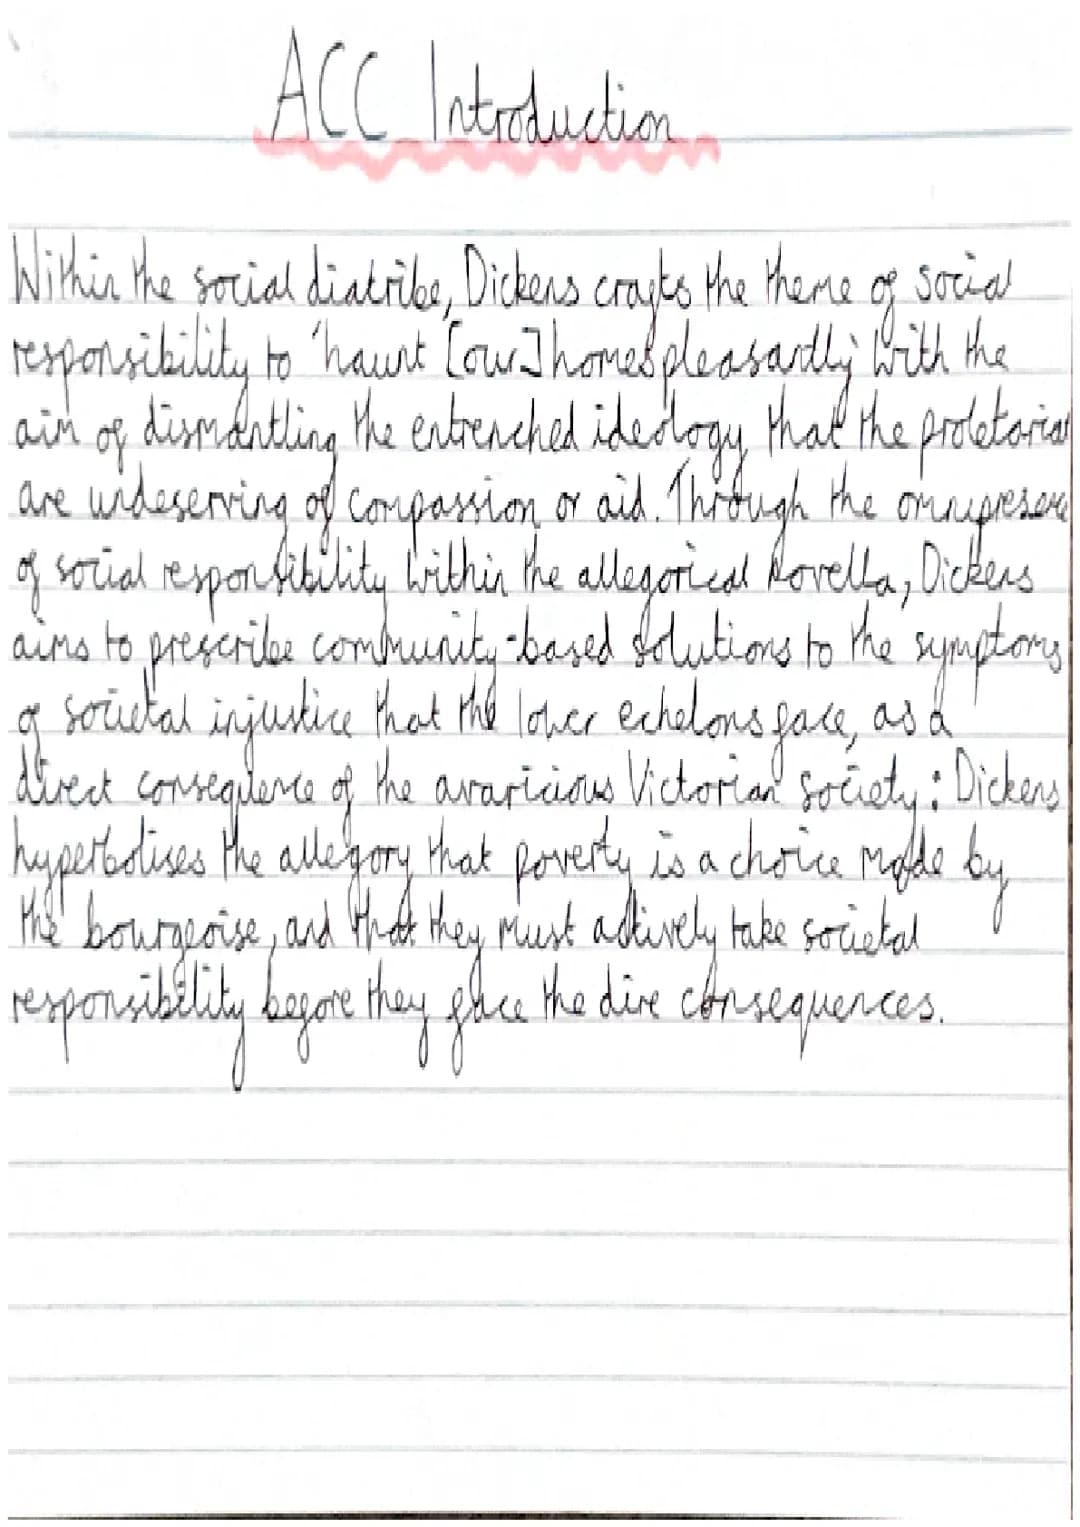 ACC Introduction
Within the social diatribe, Dickens crafts the theme of social
responsibility to 'haunt [our] homes pleasantly' with the
aim of dismantling the entrenched ideology that the proletariat
are undeserving of compassion or aid. Through the omnipresence
of social responsibility within the allegorical novella, Dickens
aims to prescribe community-based solutions to the symptoms
of societal injustice that the lower echelons face, as a
direct consequence of the avaricious Victorian society: Dickens
hyperbolises the allegory that poverty is a choice made by
the bourgeoise, and that they must actively take societal
responsibility before they face the dire consequences.